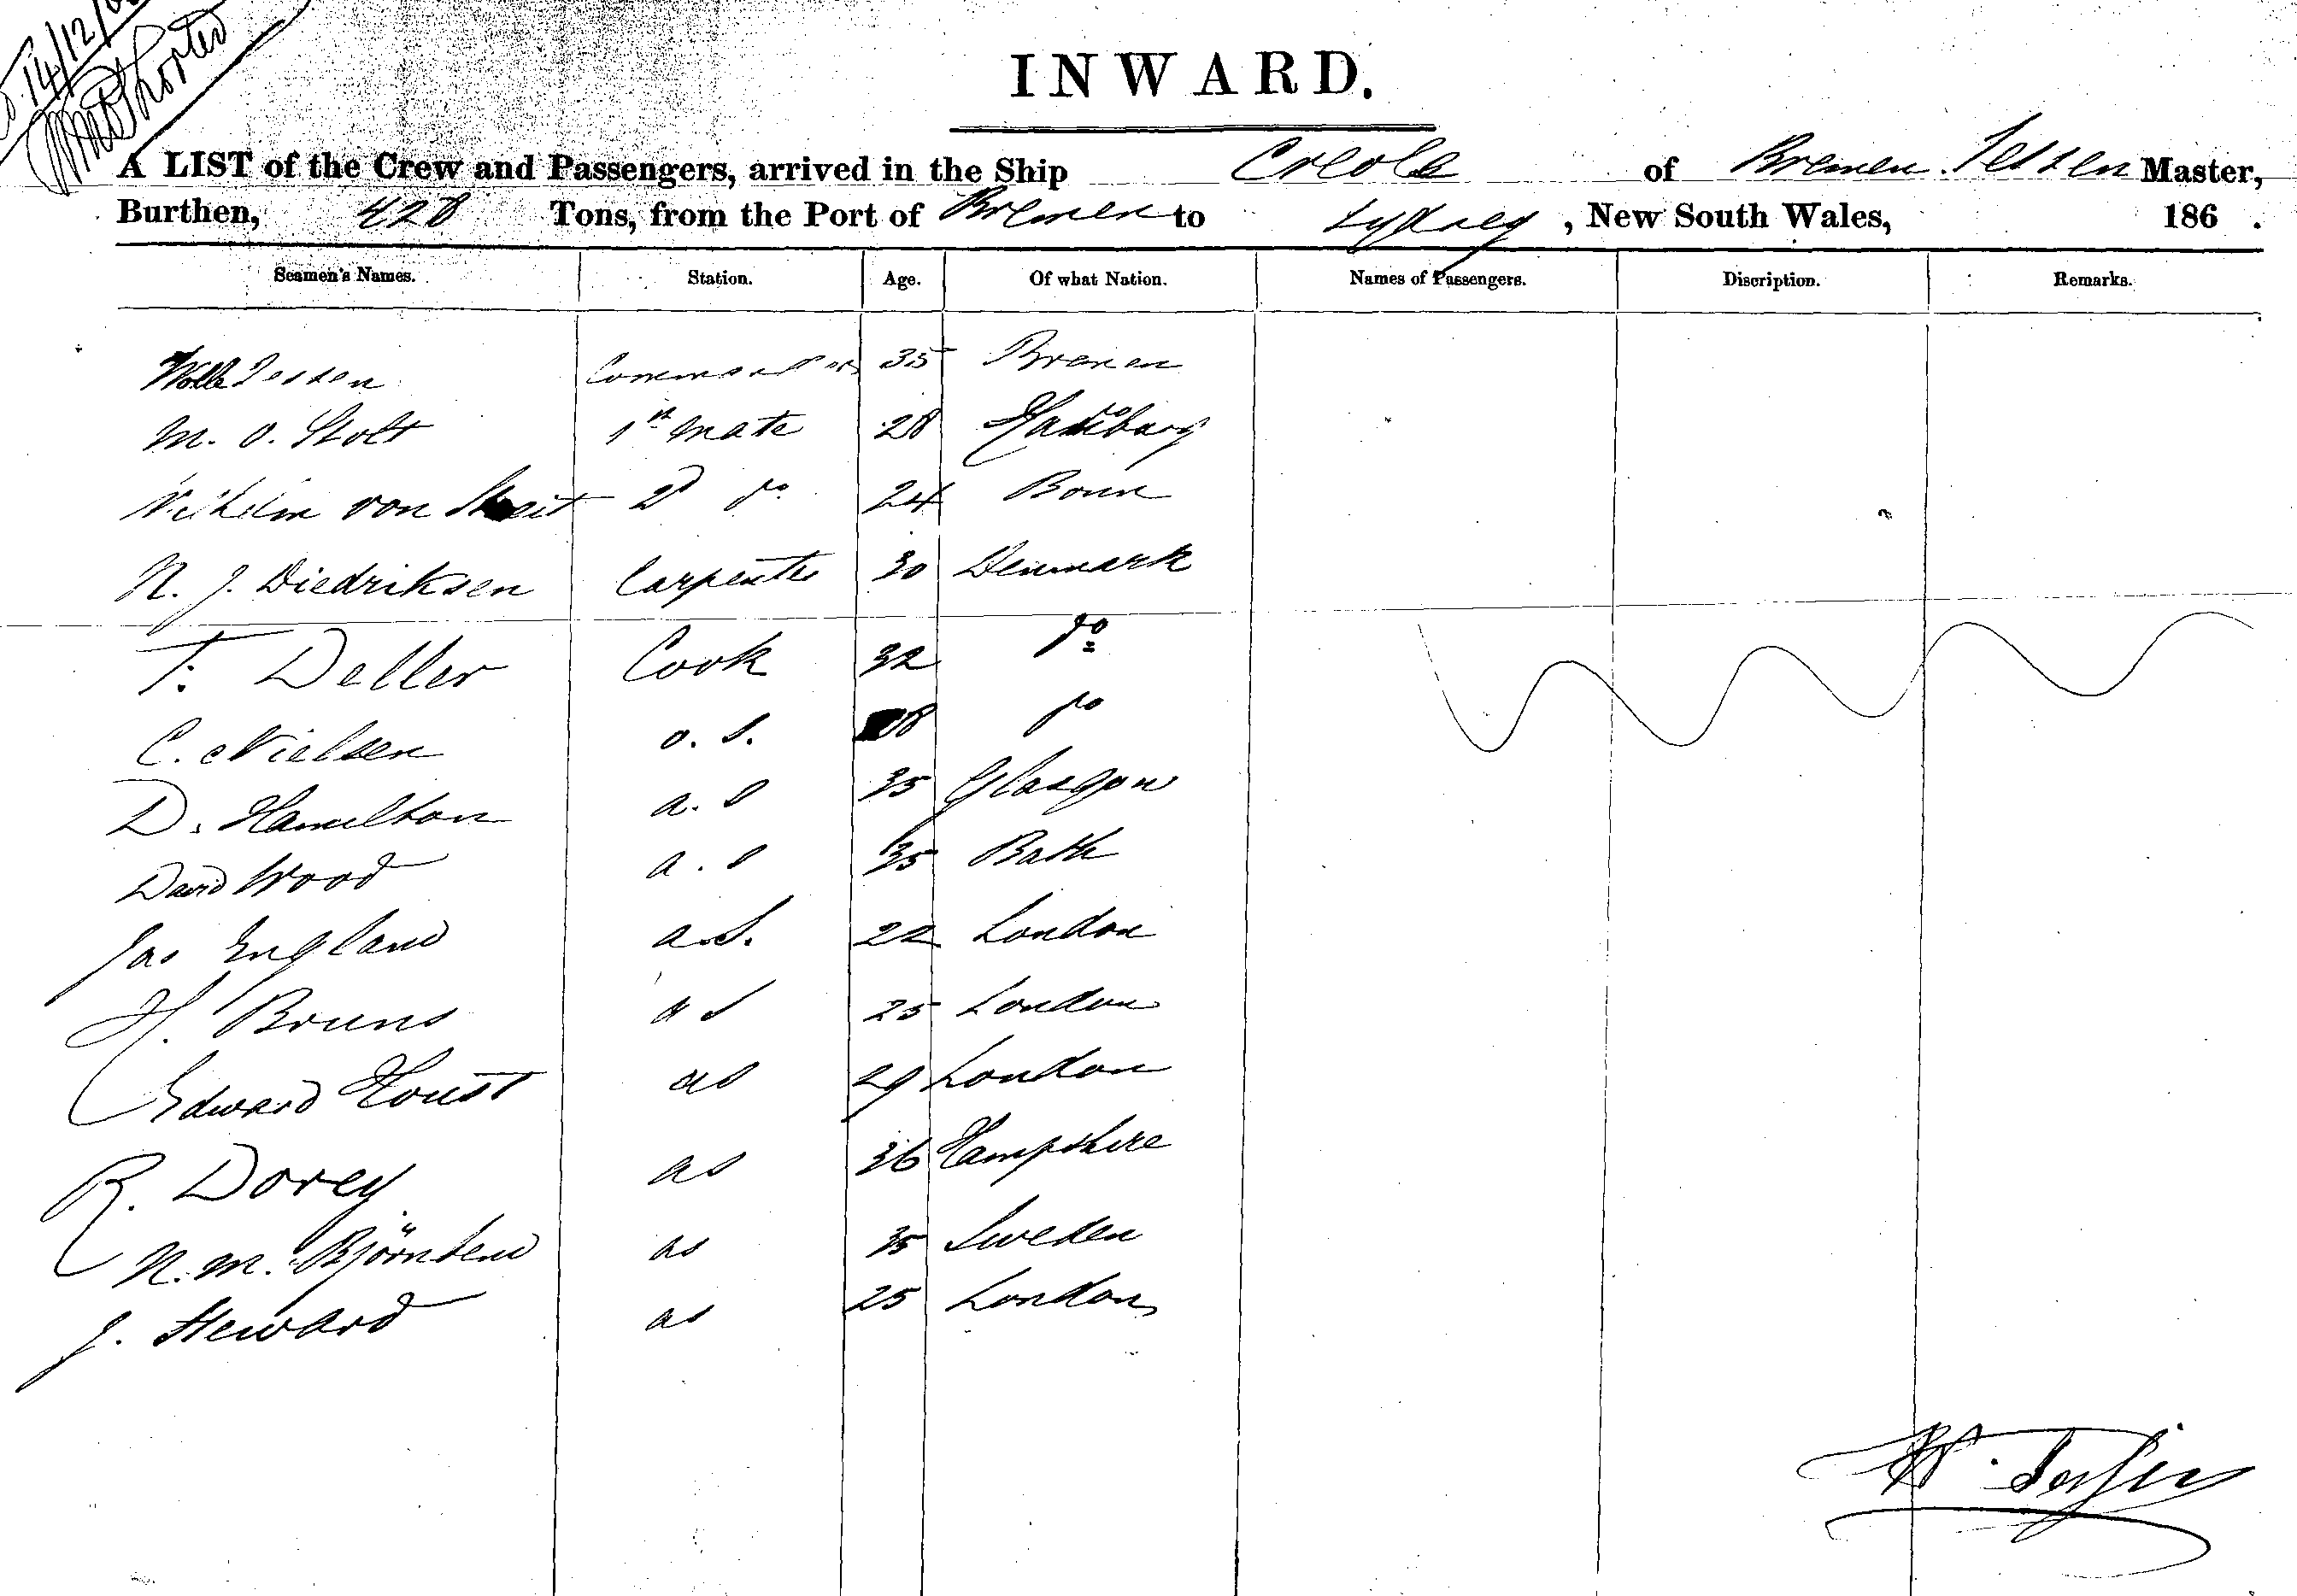 14/12/
INWARD.
A LIST of the Crew and Passengers, arrived in the Ship Creole of Bremen. Tessen Master,
Burthen, 428 Tons, from the Port of Bremen to Sydney, New South Wales, 186 .
Seamen's Names. Station. Age. Of what Nation. Names of Passengers. Discription. Remarks.
Tessen Commander 35 Bremen
M. O. Stolt 1st Mate 28 Hamburg
Vilhelm von 2d do 24 Bonn
N. J. Diedriksen Carpenter 30 Denmark
T. Deller Cook 32 do
C. Nielsen o. S. do
D. Hamilton a. S 35 Glasgow
David Wood a. S 35 Bath
Jas England a.S. 22 London
H. Bruns a S 25 London
Edward Houst as 29 London
R. Dorey as 36 Hampshire
N. M. Björnsen as 35 Sweden
J. Steward as 25 London